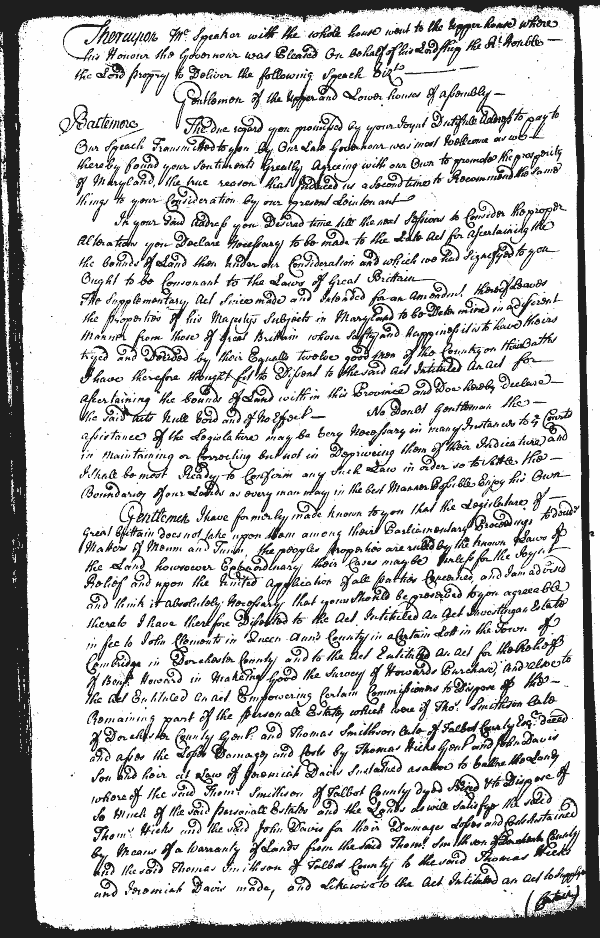 Thereupon Mr Speaker with the whole house went to the upper house where
his Honour the Governour was Pleased On behalf of his Lordship the Rt Honble
the Lord propry to Deliver the following Speech Vizt
Gentlemen of the upper and Lower houses of assembly
Baltemore The due regard you promised by your Joynt Dutifull Address to pay to
Our Speach Transmitted to you by Our Late Governour was most Welcome as we
thereby found your Sentiments Greatly Agreeing with our Own to promote the prosperity
of Maryland, the true reason that Induced us a Second time to Recommend the same
things to your Consideration by our present Leiutenant
In your Said Address you Desired time till the next Sessions to Consider the proper
Alterations you Declare Necessary to be made to the Late Act for Ascertaining the
the bounds of Land then under our Consideration and which we had Signifyed to you
Ought to be Consonant to the Laws of Great Brittain
The Supplementary Act Since made and intended for an Amendmt thereof Leaves
the properties of his Majestys Subjects in Maryland to be Determined in a different
Manner from those of Great Brittain whose Safty and Happiness it is to have theirs
tryed and Decided by their Equalls twelve good Men of the Country on their Oaths
I have therefore thought fit to Disent to the said Act Intituled An Act for
Ascertaining the bounds of Land within this Province and Doe hereby Declare
the said Acts Null Void and of No Effect No Doubt Gentlemen the
assistance of the Legislature may be very Necessary in many Instances to ye Courts
in maintaining or Correcting but not in Depriveing them of their Judicature and
I shall be most Ready to Confirm any Such Law in order so to Settle the
Boundaries of our Lands as every man may in the best Manner Possible Enjoy his Own
Gentlemen I have formerly made known to you that the Legislature of
Great Brittain does not take upon them among their Parliamentary Proceedings to
Matters of Meum and Tuum, the peoples properties are ruled by the known Laws of
the Land howsoever Extraordinary their Cases may be unless for the Joynt
Relief and upon the United Application of all parties Concerned, and I am advised
and think it absolutely Necessary that you Should be preserved to you agreeable
thereto I have therefore Disented to the Act Intituled An Act Investing an Estate
in fee to John Clements in Queen Ann's County in a Certain Lott in the Town of
Cambridge in Dorchester County and to the Act Entituled An Act for the Relief
of Benja Howard in Makeing Good the Survey of Howards Purchase, And also to
the Act Entituled An act Empowering Certain Commissioners to Dispose of the
Remaining part of the personale Estates which were of Thos Smithson Late
of Dorchester County Gent. and Thomas Smithson Late of Talbot County Esqr deced
and assess the Losses Damages and Costs by Thomas Hicks Gent and John Davis
Son and heir at Law of Jeremiah Davis Sustained as also to the Lands
whereof the said Thoms Smithson of Talbot County dyed Seized & to Dispose of
So much of the said personale Estates and the Lands as will Satisfye the said
Thoms Hicks and the said John Davis for their Damages Losses and Costs Sustained
by Means of a Warranty of Lands from the said Thoms Smithson of Dorchester County
and the said Thomas Smithson of Talbot County to the said Thomas Hicks
and Jeremiah Davis made, and Likewise to the Act Intituled an Act to Supply